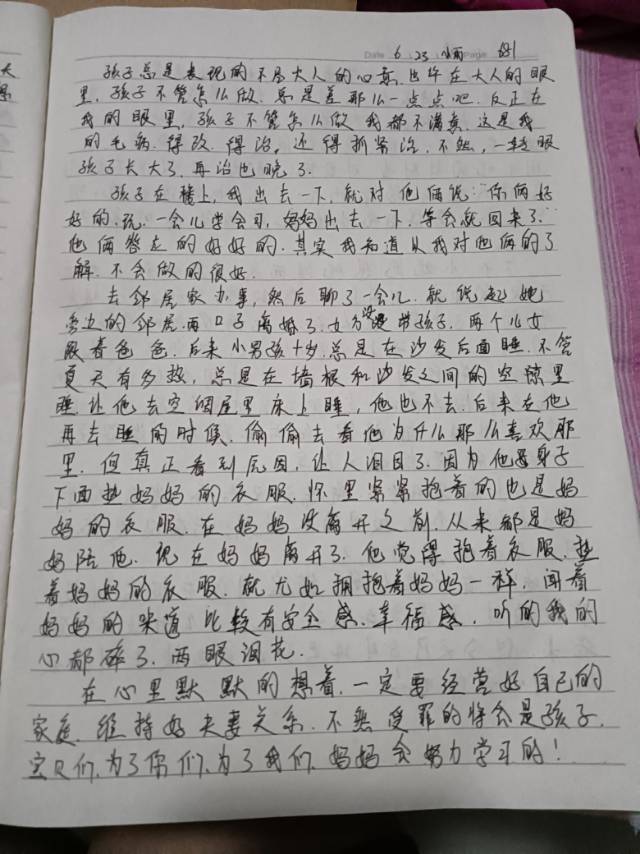 Date 6.23 小雨 Page 周
孩子总是表现的不尽大人的心意.也许在大人的眼
里,孩子不管怎么做.总是差那么一点点吧.反正在
我的眼里,孩子不管怎么做我都不满意.这是我
的毛病.得改.得治.还得抓紧治.不然,一转眼
孩子长大了.再治也晚了.
孩子在楼上,我出去一下,就对他俩说:你俩好
好的.玩.一会儿学会习,妈妈出去一下.等会就回来了.
他俩答应的好好的.其实我知道从我对他俩的了
解.不会做的很好.
去邻居家办事,然后聊了一会儿.就说起她
旁边的邻居.两口子离婚了.女方没带孩子.两个儿女
跟着爸爸.后来小男孩十岁.总是在沙发后面睡.不管
夏天有多热,总是在墙根和沙发之间的空隙里
睡.让他去空调屋里床上睡,他也不去.后来在他
再去睡的时候.偷偷去看他为什么那么喜欢那
里.但真正看到原因,让人泪目了.因为他身子
下面垫妈妈的衣服.怀里紧紧抱着的也是妈
妈的衣服.在妈妈没离开之前.从来都是妈
妈陪他.现在妈妈离开了.他觉得抱着衣服.垫
着妈妈的衣服.就尤如拥抱着妈妈一样,闻着
妈妈的味道比较有安全感.幸福感.听的我的
心都碎了.两眼泪花.
在心里默默的想着.一定要经营好自己的
家庭.维持好夫妻关系.不然受罪的将会是孩子.
宝贝们.为了你们.为了我们.妈妈会努力学习的!